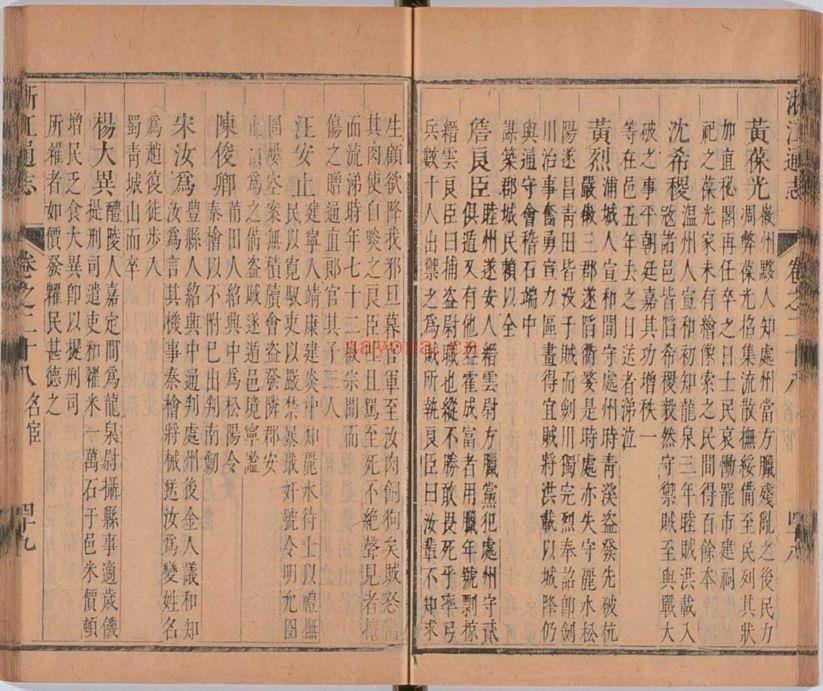 浙江通志
卷之二十八 名宦
四十八
黃葆光 徽州黟人知處州當方臘殘亂之後民方
凋弊葆光招集流散撫綏備至民列其狀
加直秘閣再任卒之日士民哀慟罷市建祠
祀之葆光家未有繪像索之民間得百餘本
沈希稷 温州人宣和初知龍泉三年睦賊洪載入
寇諸邑皆陷希稷毅然守禦賊至與戰大
破之事平朝廷嘉其功增秩一
等在邑五年去之日送者涕泣
黃烈 浦城人宣和間守處州時青溪盜發先破杭
嚴徽三郡遂蹈衢婺是時處亦失守麗水松
陽遂昌青田皆没于賊而劍川獨完烈奉詔即劍
川治事奮勇宣力區畫得宜賊將洪載以城降仍
與通守會稽石端中
謀築郡城民賴以全
詹良臣 睦州遂安人縉雲尉方臘黨犯處州守貳
俱遁又有他盜霍成富者用臘年號剽掠
縉雲良臣曰捕盜尉職也縱不勝敢畏死乎率弓
兵數十人出禦之爲賊所執良臣曰汝輩不知求
生顧欲降我邪旦暮官軍至汝肉飼狗矣賊怒
其肉使自啖之良臣且罵至死不絶聲見者
而流涕時年七十二徽宗聞而
傷之贈通直郎官其子二人
汪安止 建寧人靖康建炎中知麗水待士以禮撫
民以寬馭吏以嚴禁暴戢奸號令明允囹
圄屢空案無積牘會盜發隣郡安
止 爲之備盜賊遂遁邑境寧謐
陳俊卿 莆田人紹興中爲松陽令
秦檜以不附巳出判南劍
宋汝爲 豐縣人紹興中通判處州後金人議和知
汝爲言其機事秦檜將械送汝爲變姓名
爲趙復徒步入
蜀青城山而卒
楊大異 醴陵人嘉定間爲龍泉尉攝縣事適歲饑
提刑司遣吏和糴米一萬石于邑米價頓
增民乏食大異即以提刑司
所糴者如價發糶民甚德之
浙江通志
卷之二十八 名宦
四十九
nayona.cn